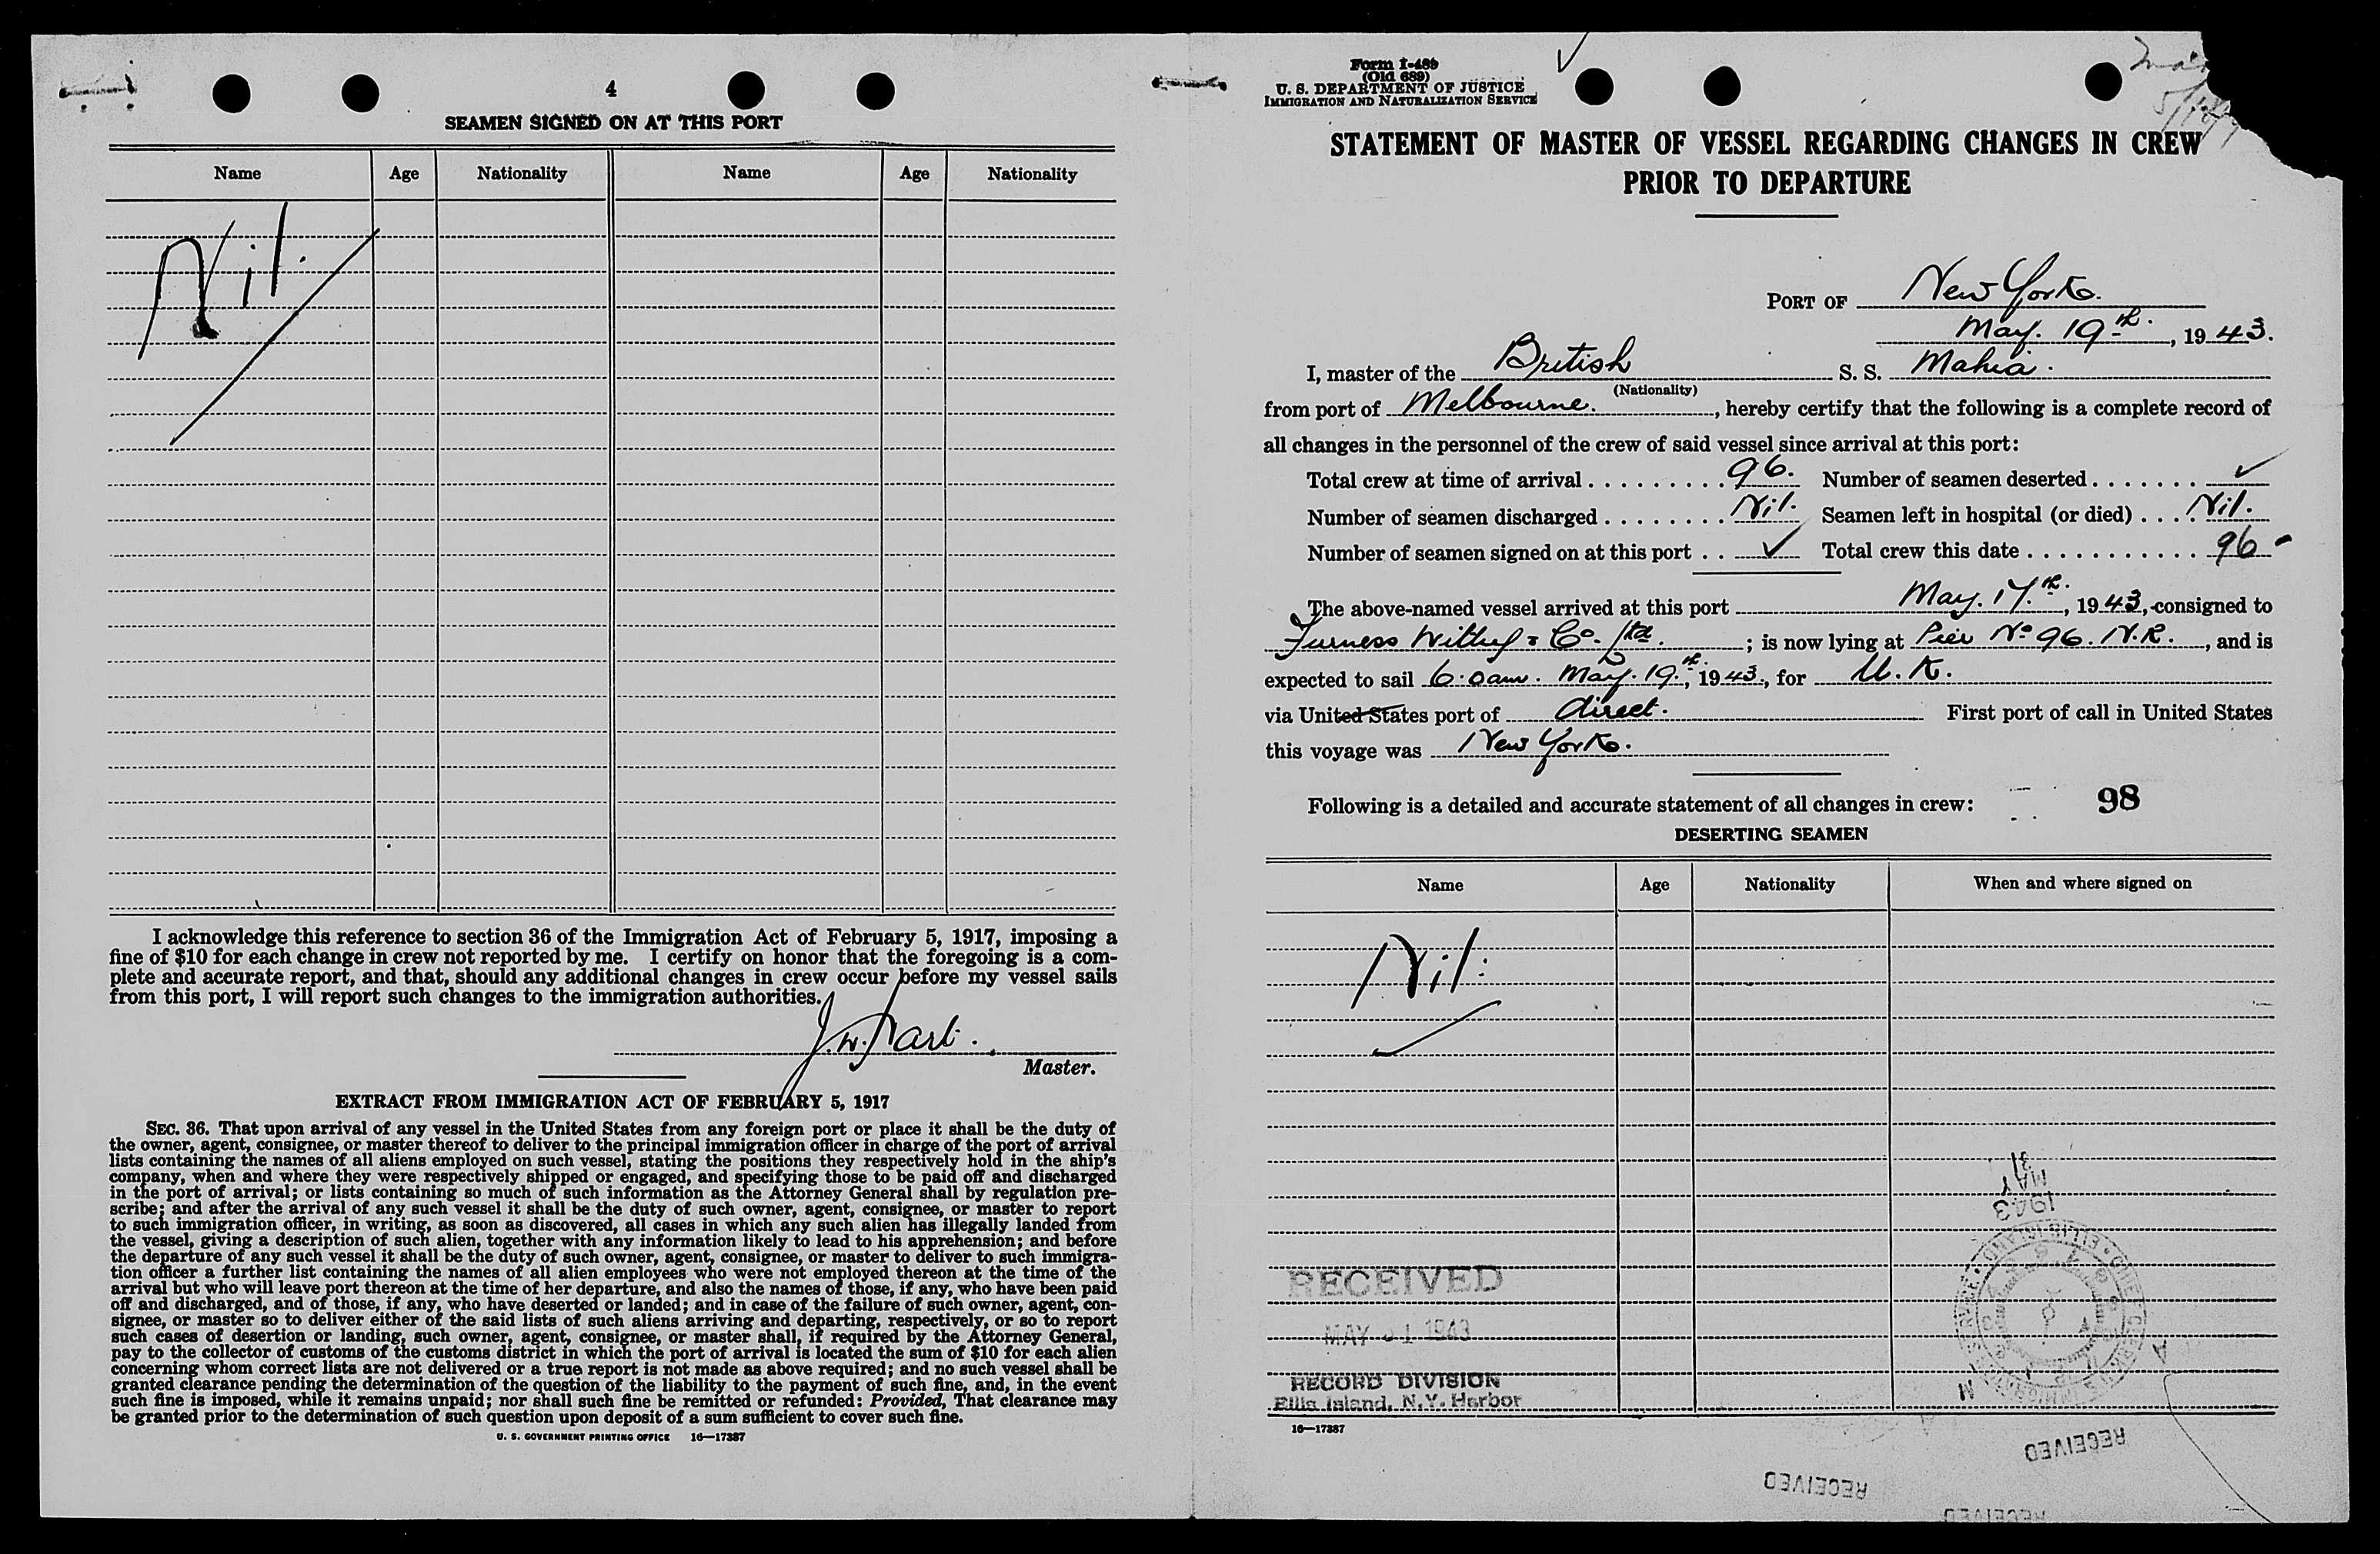 4
SEAMEN SIGNED ON AT THIS PORT
Name Age Nationality Name Age Nationality
Nil.
I acknowledge this reference to section 36 of the Immigration Act of February 5, 1917, imposing a
fine of $10 for each change in crew not reported by me. I certify on honor that the foregoing is a com-
plete and accurate report, and that, should any additional changes in crew occur before my vessel sails
from this port, I will report such changes to the immigration authorities.
J. W.
Master.
EXTRACT FROM IMMIGRATION ACT OF FEBRUARY 5, 1917
SEC. 36. That upon arrival of any vessel in the United States from any foreign port or place it shall be the duty of
the owner, agent, consignee, or master thereof to deliver to the principal immigration officer in charge of the port of arrival
lists containing the names of all aliens employed on such vessel, stating the positions they respectively hold in the ship's
company, when and where they were respectively shipped or engaged, and specifying those to be paid off and discharged
in the port of arrival; or lists containing so much of such information as the Attorney General shall by regulation pre-
scribe; and after the arrival of any such vessel it shall be the duty of such owner, agent, consignee, or master to report
to such immigration officer, in writing, as soon as discovered, all cases in which any such alien has illegally landed from
the vessel, giving a description of such alien, together with any information likely to lead to his apprehension; and before
the departure of any such vessel it shall be the duty of such owner, agent, consignee, or master to deliver to such immigra-
tion officer a further list containing the names of all alien employees who were not employed thereon at the time of the
arrival but who will leave port thereon at the time of her departure, and also the names of those, if any, who have been paid
off and discharged, and of those, if any, who have deserted or landed; and in case of the failure of such owner, agent, con-
signee, or master so to deliver either of the said lists of such aliens arriving and departing, respectively, or so to report
such cases of desertion or landing, such owner, agent, consignee, or master shall, if required by the Attorney General,
pay to the collector of customs of the customs district in which the port of arrival is located the sum of $10 for each alien
concerning whom correct lists are not delivered or a true report is not made as above required; and no such vessel shall be
granted clearance pending the determination of the question of the liability to the payment of such fine, and, in the event
such fine is imposed, while it remains unpaid; nor shall such fine be remitted or refunded: Provided, That clearance may
be granted prior to the determination of such question upon deposit of a sum sufficient to cover such fine.
U. S. GOVERNMENT PRINTING OFFICE 16—17387
Form I-489
(Old 689)
U. S. DEPARTMENT OF JUSTICE
IMMIGRATION AND NATURALIZATION SERVICE
STATEMENT OF MASTER OF VESSEL REGARDING CHANGES IN CREW
PRIOR TO DEPARTURE
PORT OF New York.
May. 19th., 1943.
I, master of the British S. S. Mahia.
(Nationality)
from port of Melbourne., hereby certify that the following is a complete record of
all changes in the personnel of the crew of said vessel since arrival at this port:
Total crew at time of arrival . . . . . . . . . 96. Number of seamen deserted . . . . . . . ✓
Number of seamen discharged . . . . . . . . Nil. Seamen left in hospital (or died) . . . . Nil.
Number of seamen signed on at this port . . ✓ Total crew this date . . . . . . . . . . . 96
The above-named vessel arrived at this port May. 17.th., 1943, consigned to
Furness Withy & Co. Ltd. ; is now lying at Pier No 96. N.R., and is
expected to sail 6.0am. May. 19.th., 1943., for U. K.
via United States port of direct. First port of call in United States
this voyage was New York.
Following is a detailed and accurate statement of all changes in crew: 98
DESERTING SEAMEN
Name Age Nationality When and where signed on
Nil.
MAY 31 1943
RECEIVED
MAY 31 1943
RECORD DIVISION
Ellis Island, N.Y. Harbor
16—17387
RECEIVED
RECEIVED
RECEIVED